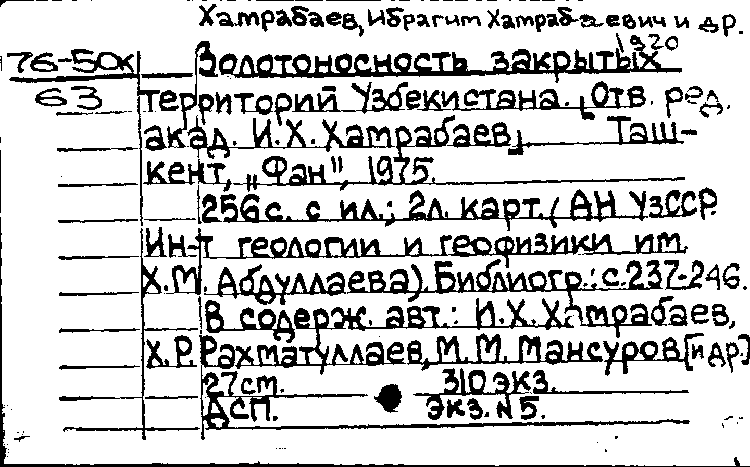 Хатрабаев, Ибрагит Хатрабаевич и др.
1920
76-50к Золотоносность закрытых
63 территорий Узбекистана. [Отв. ред.
акад. И.Х. Хатрабаев]. Таш-
кент, „Фан", 1975.
256с. с ил.; 2л. карт. (АН УзССР.
Ин-т геологии и геофизики им.
Х.М. Абдуллаева). Библиогр.: с.237-246.
В содерж. авт.: И.Х. Хатрабаев,
Х.Р. Рахматуллаев, М.М. Мансуров [и др.]
27ст. 310 экз.
ДСП. экз. N 5.